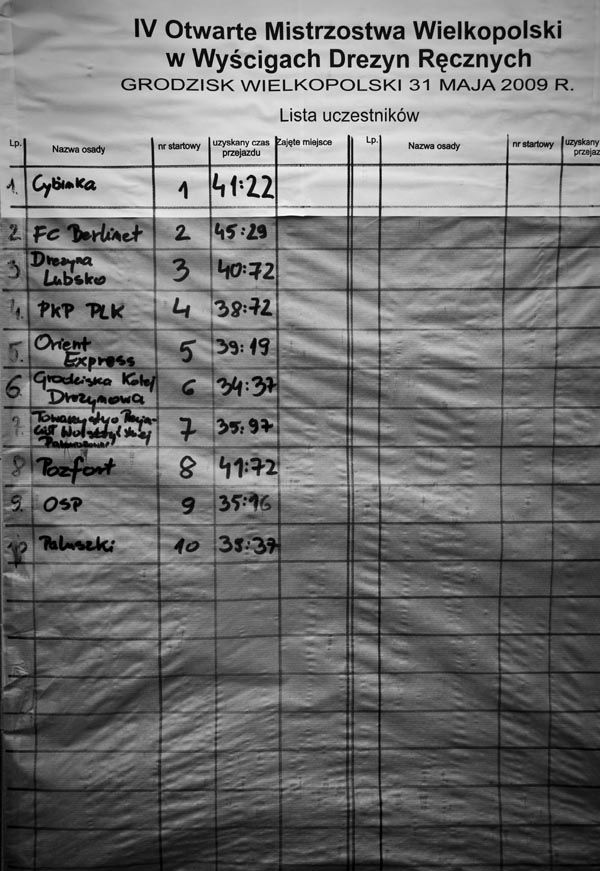 IV Otwarte Mistrzostwa Wielkopolski
w Wyścigach Drezyn Ręcznych
GRODZISK WIELKOPOLSKI 31 MAJA 2009 R.
Lista uczestników
Lp. Nazwa osady nr startowy uzyskany czas przejazdu Zajęte miejsce Lp. Nazwa osady nr startowy uzyskany przejaz
1. Cybinka 1 41:22
2 FC Berlinet 2 45:29
3 Drezyna Lubsko 3 40:72
4. PKP PLK 4 38:72
5. Orient Express 5 39:19
6. Grodziska Kolej Drezynowa 6 34:37
7 7 35:97
8 Pozfort 8 41:72
9. OSP 9 35:16
10 Paluszki 10 35:37